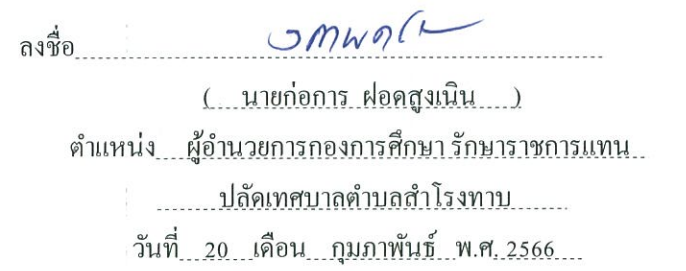 ลงชื่อ
( นายก่อการ ฝอดสูงเนิน )
ตำแหน่ง ผู้อำนวยการกองการศึกษา รักษาราชการแทน
ปลัดเทศบาลตำบลสำโรงทาบ
วันที่ 20 เดือน กุมภาพันธ์ พ.ศ. 2566